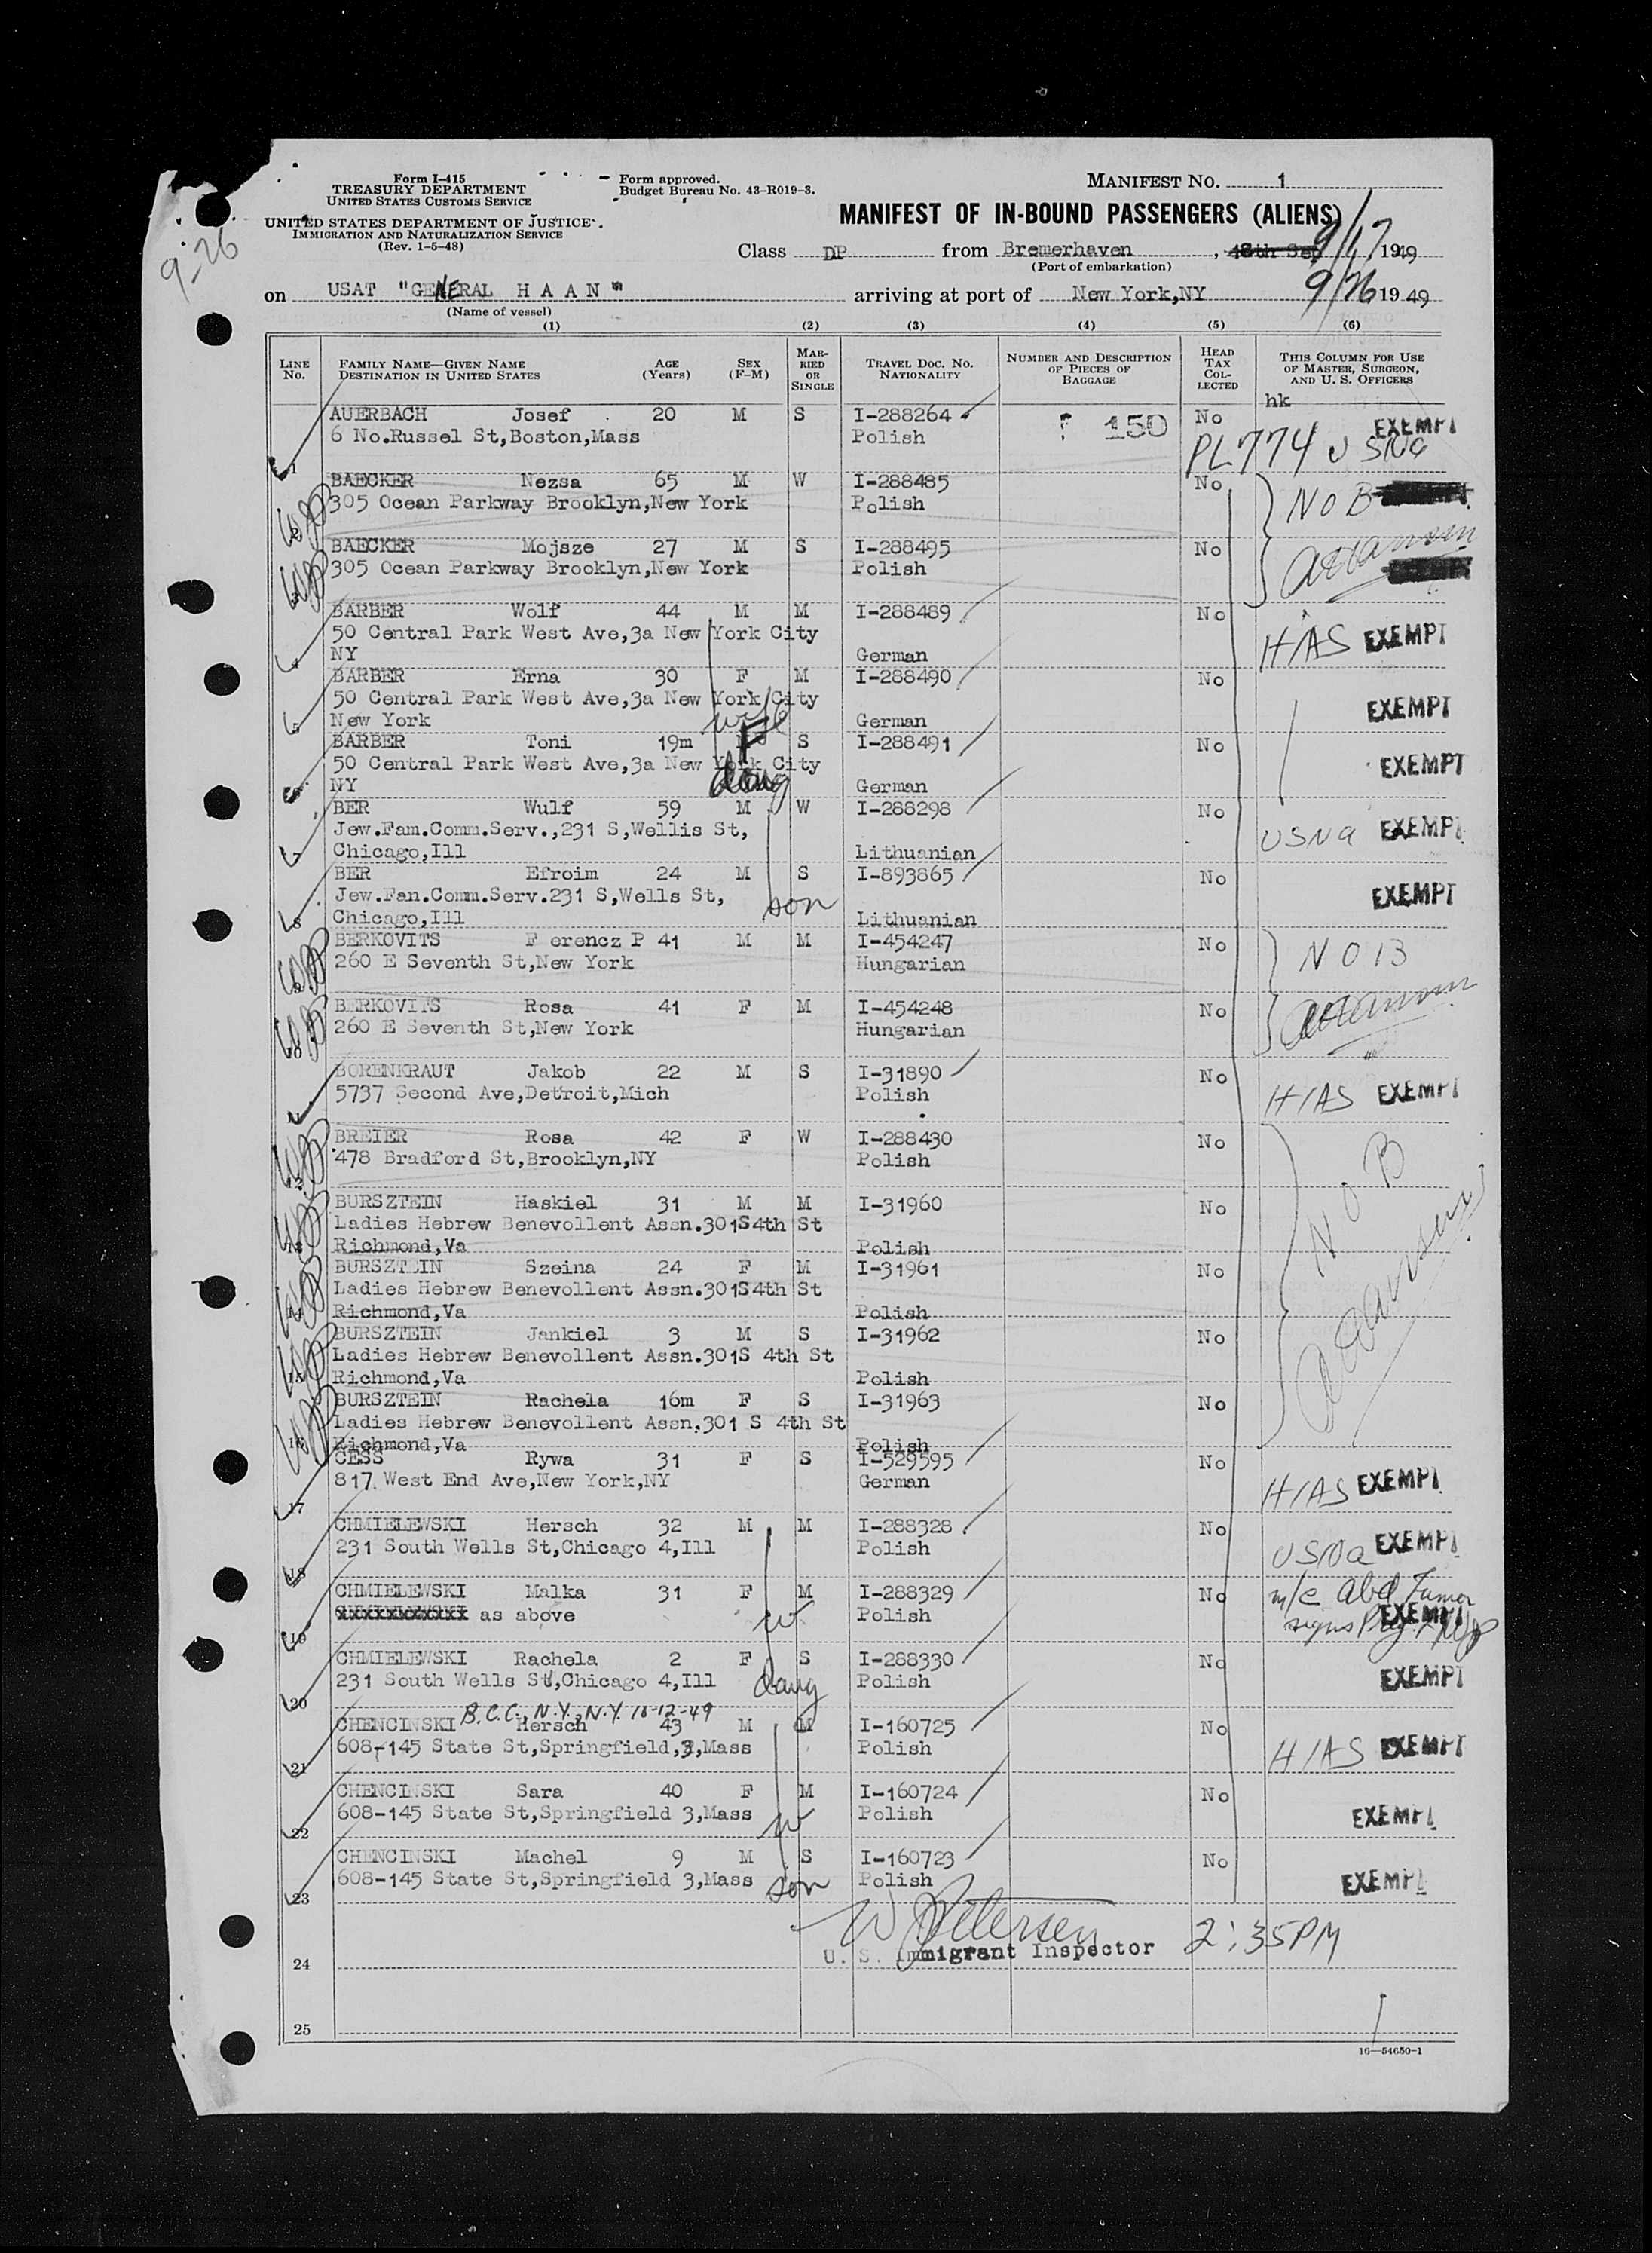 Form I-415
TREASURY DEPARTMENT
UNITED STATES CUSTOMS SERVICE
UNITED STATES DEPARTMENT OF JUSTICE
IMMIGRATION AND NATURALIZATION SERVICE
(Rev. 1-5-48)
Form approved.
Budget Bureau No. 43-R019-3.
MANIFEST NO. 1
MANIFEST OF IN-BOUND PASSENGERS (ALIENS)
9-26
Class DP from Bremerhaven, 18th Sep 9/17 1949
(Port of embarkation)
on USAT "GENERAL HAAN" arriving at port of New York,NY 9/26 1949
(Name of vessel)
(1) (2) (3) (4) (5) (6)
LINE NO. FAMILY NAME—GIVEN NAME DESTINATION IN UNITED STATES AGE (Years) SEX (F-M) MARRIED OR SINGLE TRAVEL DOC. NO. NATIONALITY NUMBER AND DESCRIPTION OF PIECES OF BAGGAGE HEAD TAX COLLECTED THIS COLUMN FOR USE OF MASTER, SURGEON, AND U. S. OFFICERS
hk
AUERBACH Josef 20 M S I-288264 150 No EXEMPT
6 No.Russel St,Boston,Mass Polish PL774 USNA
BAECKER Nezsa 65 M W I-288485 No
305 Ocean Parkway Brooklyn,New York Polish NOB
BAECKER Mojsze 27 M S I-288495 No
305 Ocean Parkway Brooklyn,New York Polish
BARBER Wolf 44 M M I-288489 No
50 Central Park West Ave,3a New York City HIAS EXEMPT
NY German
BARBER Erna 30 F M I-288490 No
50 Central Park West Ave,3a New York City EXEMPT
New York wife German
BARBER Toni 19m F S I-288491 No
50 Central Park West Ave,3a New York City EXEMPT
NY daug German
BER Wulf 59 M W I-288298 No
Jew.Fam.Comm.Serv.,231 S,Wellis St, USNA EXEMPT
Chicago,Ill Lithuanian
BER Efroim 24 M S I-893865 No
Jew.Fan.Comm.Serv.231 S,Wells St, son EXEMPT
Chicago,Ill Lithuanian
BERKOVITS F erencz P 41 M M I-454247 No
260 E Seventh St,New York Hungarian NOB
BERKOVITS Rosa 41 F M I-454248 No
260 E Seventh St,New York Hungarian
BORENKRAUT Jakob 22 M S I-31890 No
5737 Second Ave,Detroit,Mich Polish HIAS EXEMPT
BREIER Rosa 42 F W I-288430 No
478 Bradford St,Brooklyn,NY Polish
NOB
BURSZTEIN Haskiel 31 M M I-31960 No
Ladies Hebrew Benevollent Assn.301S4th St
Richmond,Va Polish
BURSZTEIN Szeina 24 F M I-31961 No
Ladies Hebrew Benevollent Assn.301S4th St
Richmond,Va Polish
BURSZTEIN Jankiel 3 M S I-31962 No
Ladies Hebrew Benevollent Assn.301S 4th St
Richmond,Va Polish
BURSZTEIN Rachela 16m F S I-31963 No
Ladies Hebrew Benevollent Assn,301 S 4th St
16 Richmond,Va Polish
CESS Rywa 31 F S I-529595 No
817 West End Ave,New York,NY German HIAS EXEMPT
17
CHMIELEWSKI Hersch 32 M M I-288328 No
231 South Wells St,Chicago 4,Ill Polish USNA EXEMPT
18
CHMIELEWSKI Malka 31 F M I-288329 No m/c abd Tumor
xxxxxxxxxxx as above w Polish EXEMPT
19
CHMIELEWSKI Rachela 2 F S I-288330 No
231 South Wells St,Chicago 4,Ill daug Polish EXEMPT
20
B.C.C., N.Y., N.Y. 10-12-49
CHENCINSKI Hersch 43 M M I-160725 No
608-145 State St,Springfield,3,Mass Polish HIAS EXEMPT
21
CHENCINSKI Sara 40 F M I-160724 No
608-145 State St,Springfield 3,Mass w Polish EXEMPT
22
CHENCINSKI Machel 9 M S I-160723 No
608-145 State St,Springfield 3,Mass son Polish EXEMPT
23
W Petersen
U. S. Immigrant Inspector 2:35PM
24
25
16—54650-1